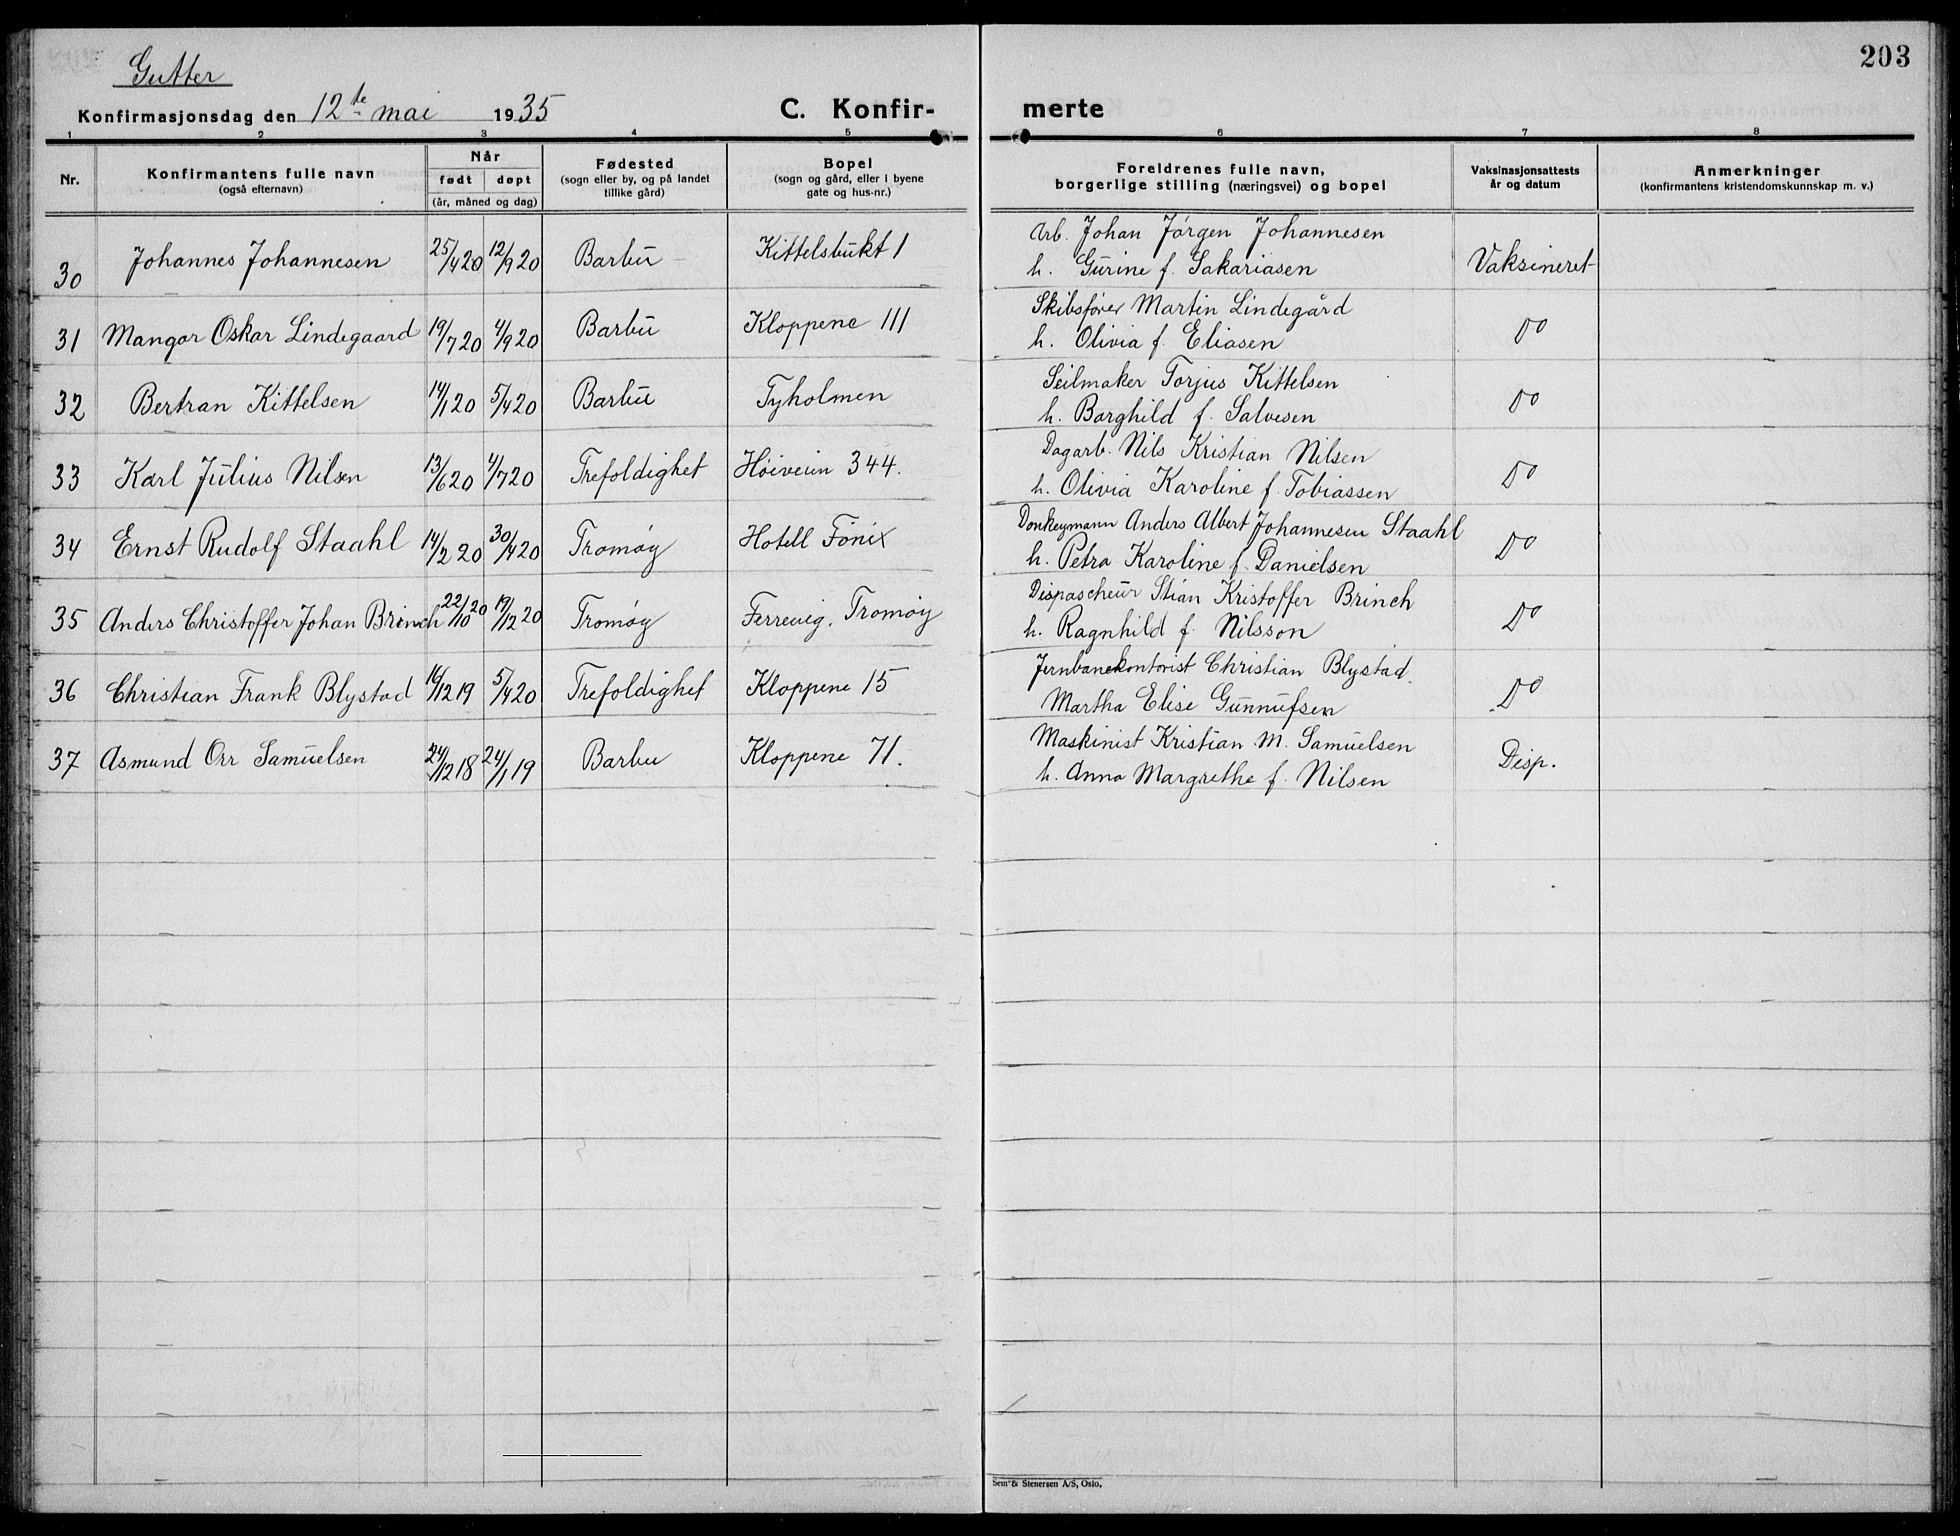 203
Gutter
Konfirmasjonsdag den 12te mai 1935 C. Konfir- merte
1 2 3 4 5 6 7 8
Nr. Konfirmantens fulle navn (også efternavn) Når født døpt (år, måned og dag) Fødested (sogn eller by, og på landet tillike gård) Bopel (sogn og gård, eller i byene gate og hus-nr.) Foreldrenes fulle navn, borgerlige stilling (næringsvei) og bopel Vaksinasjonsattests år og datum Anmerkninger (konfirmantens kristendomskunnskap m. v.)
30 Johannes Johannesen 25/4 20 12/9 20 Barbu Kittelsbukt 1 Arb. Johan Jørgen Johannesen Vaksineret
h. Gurine f. Sakariasen
31 Mangor Oskar Lindegaard 19/7 20 4/9 20 Barbu Kloppene 111 Skibsfører Martin Lindegård Do
h. Olivia f. Eliasen
32 Bertran Kittelsen 14/1 20 5/4 20 Barbu Tyholmen Seilmaker Torjus Kittelsen Do
h. Borghild f. Salvesen
33 Karl Julius Nilsen 13/6 20 4/7 20 Trefoldighet Høiveien 344. Dagarb. Nils Kristian Nilsen Do
h. Olivia Karoline f. Tobiassen
34 Ernst Rudolf Staahl 14/2 20 30/4 20 Tromøy Hotell Fønix Donkeymann Anders Albert Johannesen Staahl Do
h. Petra Karoline f. Danielsen
35 Anders Christoffer Johan Brinch 22/10 20 19/12 20 Tromøy Færevig, Tromøy Dispascheur Stian Kristoffer Brinch Do
h. Ragnhild f. Nilsson
36 Christian Frank Blystad 16/12 19 5/4 20 Trefoldighet Kloppene 15 Jernbanekontorist Christian Blystad. Do
Martha Elise Gunnufsen
37 Asmund Orr Samuelsen 24/12 18 24/1 19 Barbu Kloppene 71. Maskinist Kristian M. Samuelsen Disp.
h. Anna Margrethe f. Nilsen
Sem & Stenersen A/S, Oslo.